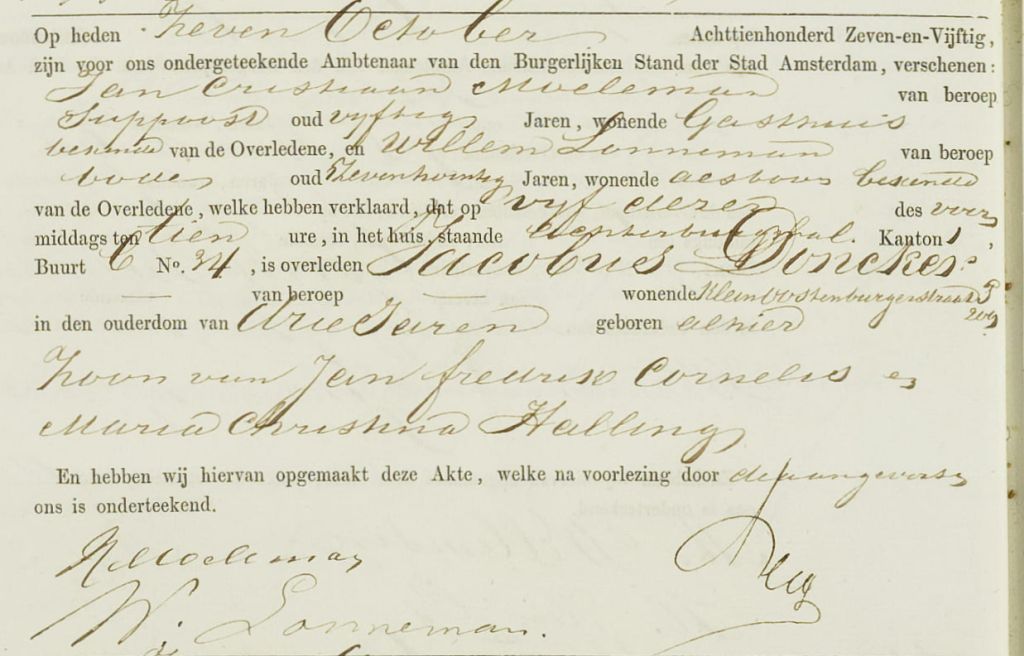 Op heden Zeven October Achttienhonderd Zeven-en-Vijftig,
zijn voor ons ondergeteekende Ambtenaar van den Burgerlijken Stand der Stad Amsterdam, verschenen:
Jan Cristiaan Moeleman van beroep
Suppoost oud vyftig Jaren, wonende Gasthuis
bekende van de Overledene, en Willem Lonneman van beroep
bode oud Jaren, wonende aldaar bekende
van de Overledene, welke hebben verklaard, dat op vyf dezer des voor
middags ten tien ure, in het huis, staande Achterburgwal. Kanton 1,
Buurt C No. 34, is overleden Jacobus Doncker
— van beroep — wonende Klein Oostenburgerstraat 5
in den ouderdom van drie Jaren geboren alhier
Zoon van Jan fredrik Cornelis en
Maria Christina Halling
En hebben wij hiervan opgemaakt deze Akte, welke na voorlezing door de aangevers en
ons is onderteekend.
Moeleman
W. Lonneman.